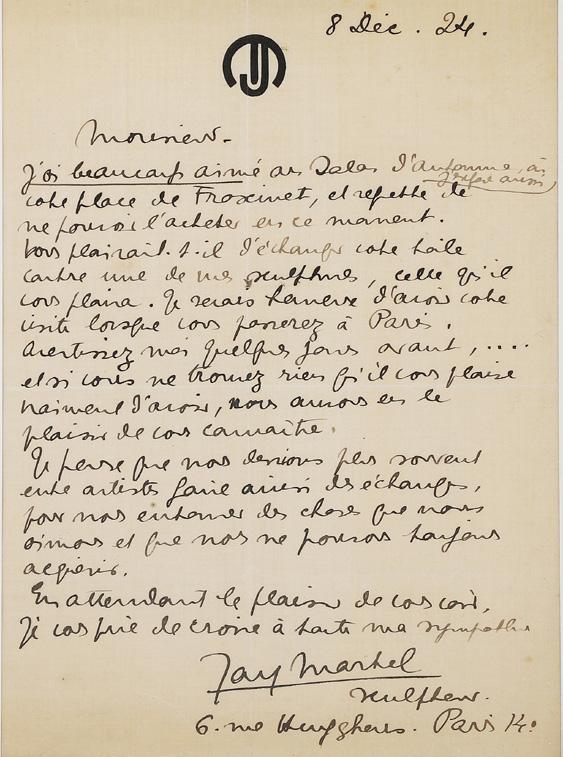 8 Déc. 24.
Monsieur-
J'ai beaucoup aimé au Salon d'automne, où
j'expose aussi
votre place de et regrette de
ne pouvoir l'acheter en ce moment.
Vous plairait-t-il d'échanger votre toile
contre une de mes sculptures, celle qu'il
vous plaira. Je serais heureux d'avoir votre
visite lorsque vous passerez à Paris.
Avertissez moi quelques jours avant, ....
et si vous ne trouvez rien qu'il vous plaise
vraiment d'avoir, nous aurons eu le
plaisir de vous connaître.
Je pense que nous devrions plus souvent
entre artistes faire ainsi des échanges,
pour nous entourer des choses que nous
aimons et que nous ne pouvons toujours
acquérir.
En attendant le plaisir de vous voir,
je vous prie de croire à toute ma sympathie
Martel
sculpteur.
6. rue Huyghens. Paris 14e